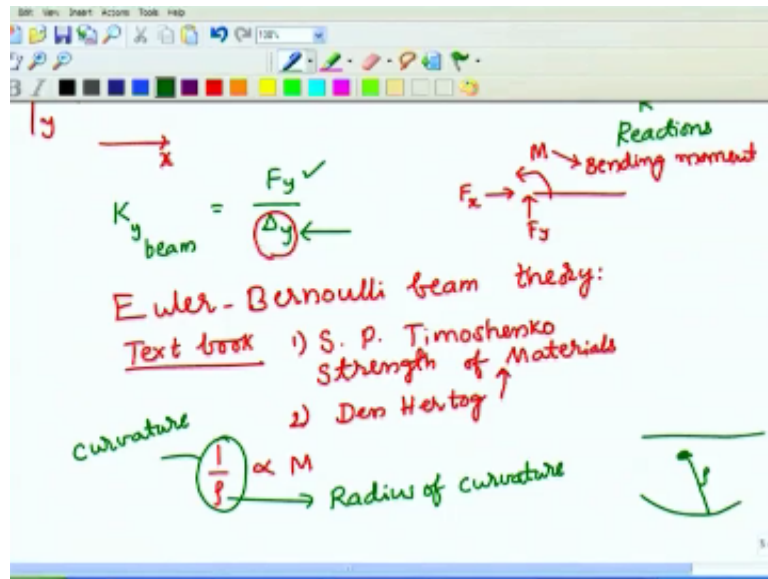 Edit View Insert Actions Tools Help
100%
B I
y
x
K
Reactions
M → Bending moment
F_x →
F_y
K_y beam = F_y ✓ / Δy ←
Euler-Bernoulli beam theory:
Text book 1) S. P. Timoshenko
Strength of Materials
2) Den Hertog ↑
curvature
1/ρ ∝ M
→ Radius of curvature
ρ